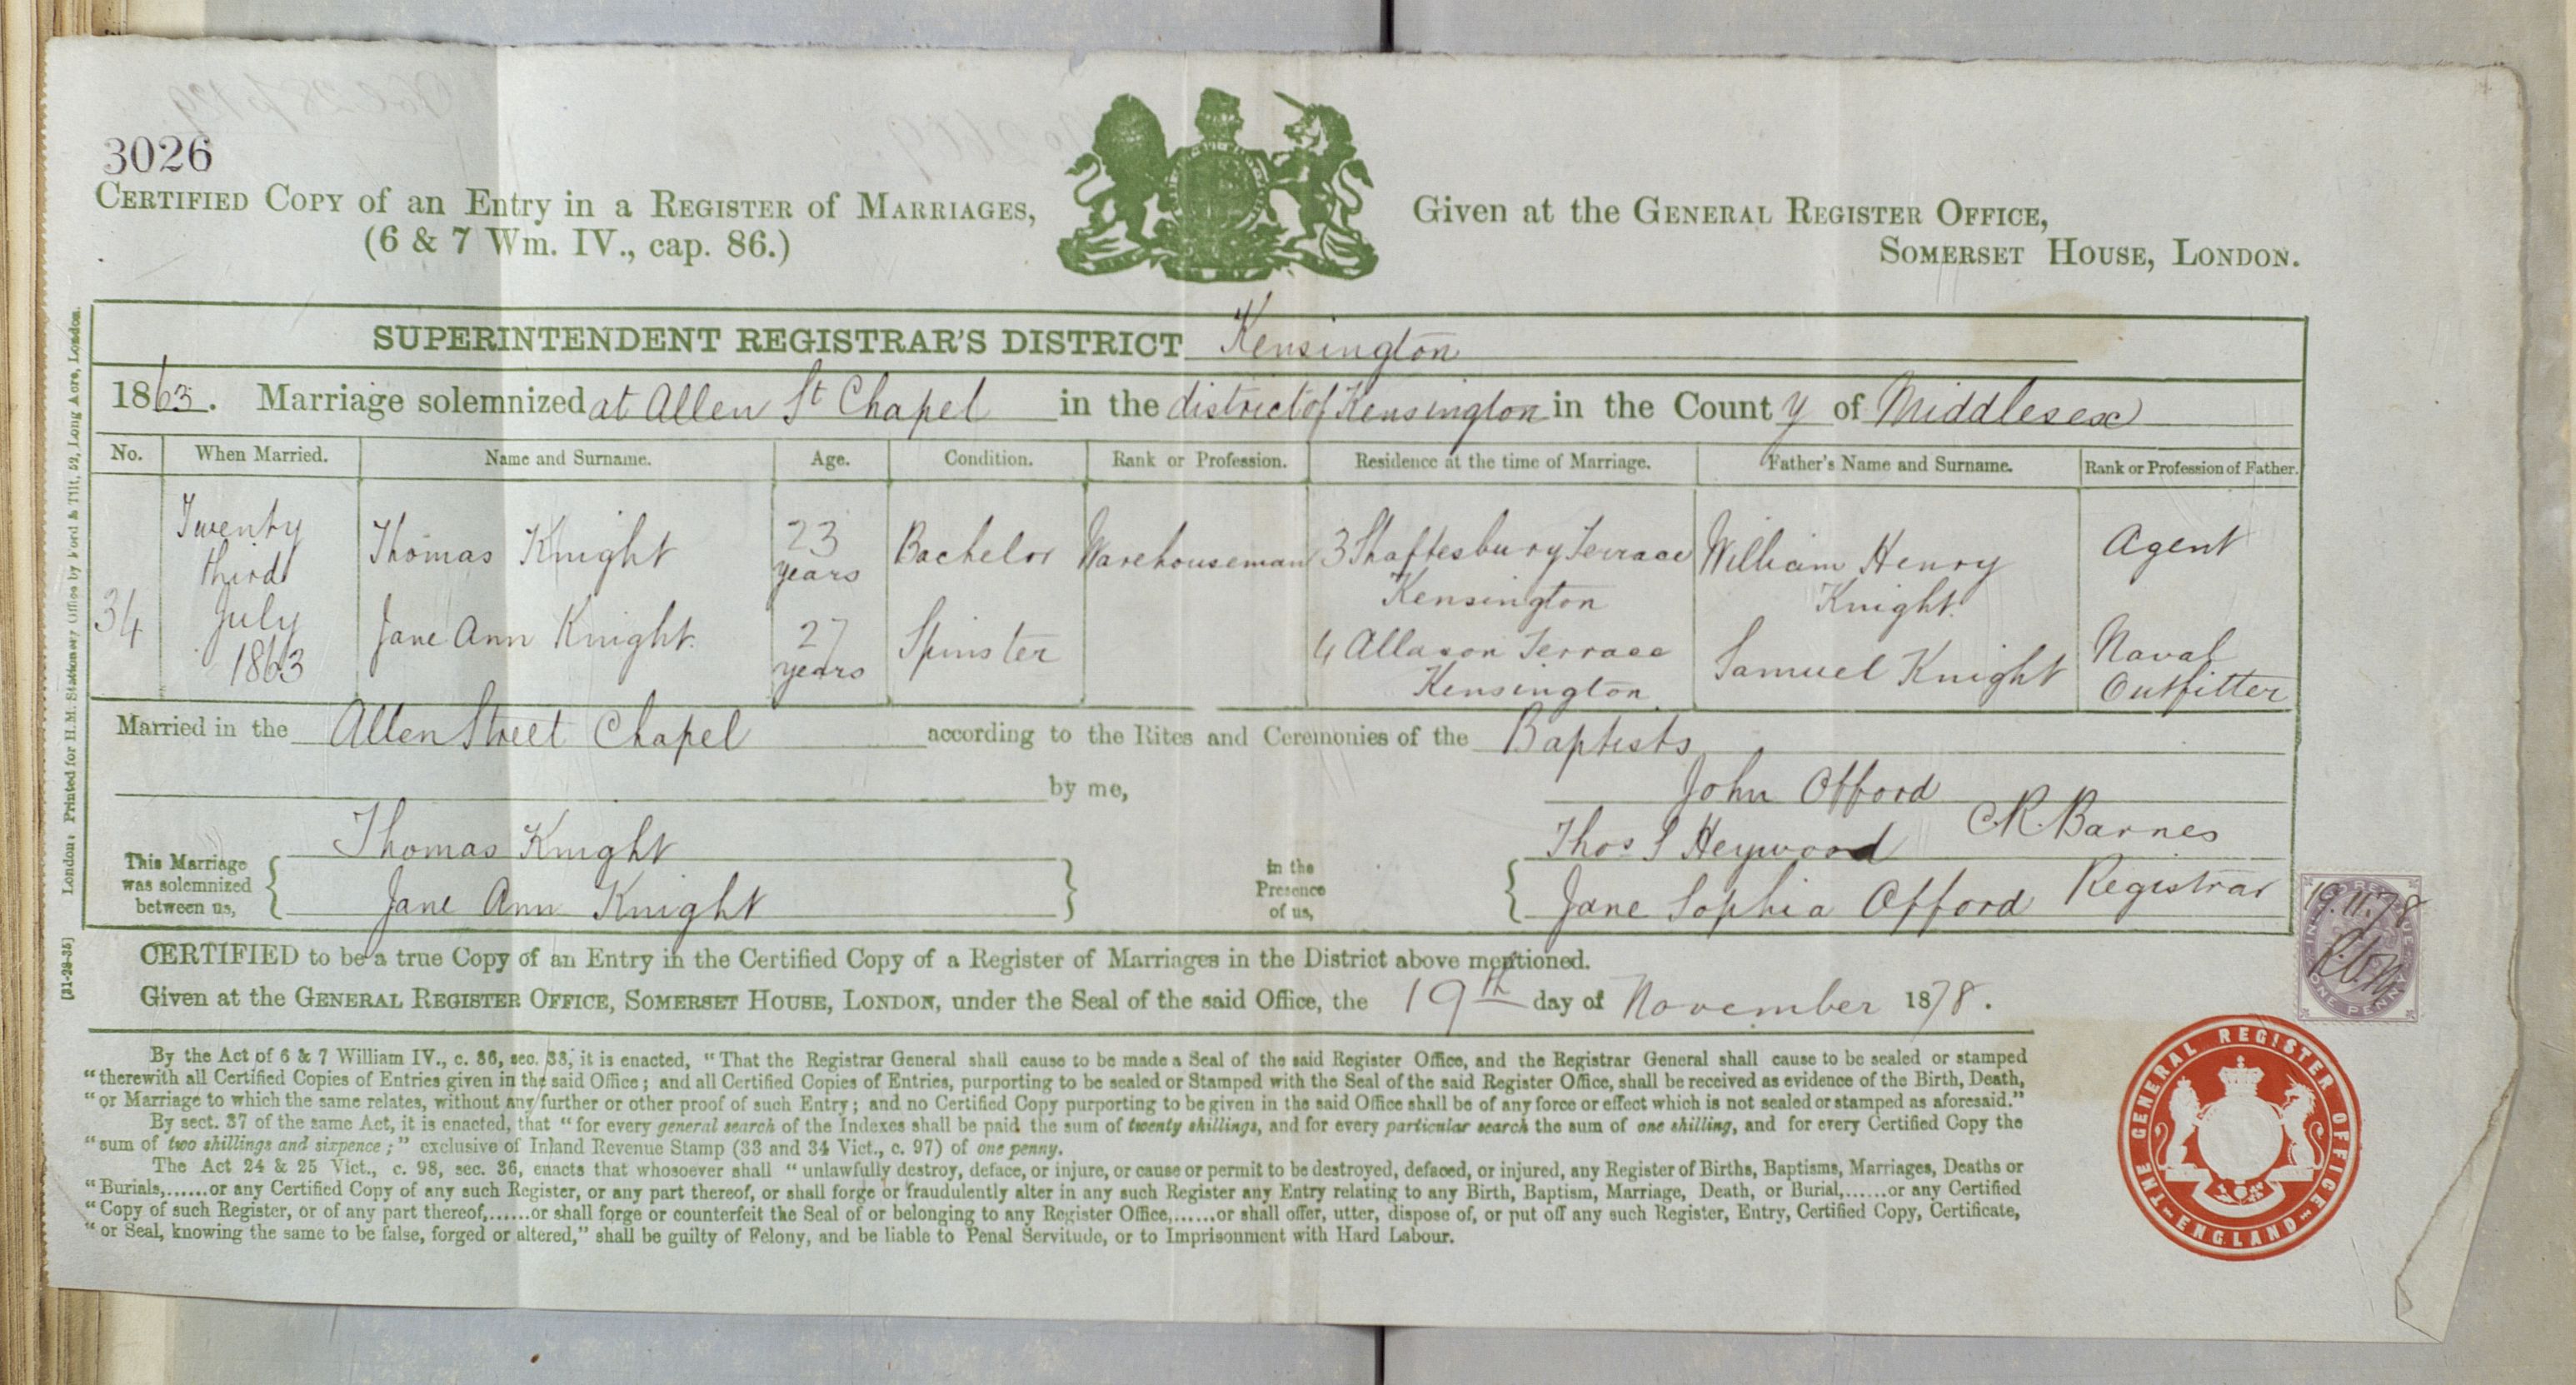 3026
CERTIFIED COPY of an Entry in a REGISTER of MARRIAGES,
(6 & 7 Wm. IV., cap. 86.)
Given at the GENERAL REGISTER OFFICE,
SOMERSET HOUSE, LONDON.
SUPERINTENDENT REGISTRAR'S DISTRICT Kensington
1863. Marriage solemnized at Allen St Chapel in the district of Kensington in the County of Middlesex
No. When Married. Name and Surname. Age. Condition. Rank or Profession. Residence at the time of Marriage. Father's Name and Surname. Rank or Profession of Father.
34
Twenty
third
July
1863
Thomas Knight 23 years Bachelor Warehouseman 3 Shaftesbury Terrace Kensington William Henry Knight. Agent
Jane Ann Knight. 27 years Spinster 4 Allason Terrace Kensington. Samuel Knight Naval Outfitter
Married in the Allen Street Chapel according to the Rites and Ceremonies of the Baptists
by me,
John Offord
C.R. Barnes
Registrar
This Marriage
was solemnized
between us,
Thomas Knight
Jane Ann Knight
in the
Presence
of us,
Thos S Heywood
Jane Sophia Offord
CERTIFIED to be a true Copy of an Entry in the Certified Copy of a Register of Marriages in the District above mentioned.
Given at the GENERAL REGISTER OFFICE, SOMERSET HOUSE, LONDON, under the Seal of the said Office, the 19th day of November 1878.
By the Act of 6 & 7 William IV., c. 86, sec. 38, it is enacted, "That the Registrar General shall cause to be made a Seal of the said Register Office, and the Registrar General shall cause to be sealed or stamped
"therewith all Certified Copies of Entries given in the said Office; and all Certified Copies of Entries, purporting to be sealed or Stamped with the Seal of the said Register Office, shall be received as evidence of the Birth, Death,
"or Marriage to which the same relates, without any further or other proof of such Entry; and no Certified Copy purporting to be given in the said Office shall be of any force or effect which is not sealed or stamped as aforesaid."
By sect. 37 of the same Act, it is enacted, that "for every general search of the Indexes shall be paid the sum of twenty shillings, and for every particular search the sum of one shilling, and for every Certified Copy the
"sum of two shillings and sixpence;" exclusive of Inland Revenue Stamp (33 and 34 Vict., c. 97) of one penny.
The Act 24 & 25 Vict., c. 98, sec. 36, enacts that whosoever shall "unlawfully destroy, deface, or injure, or cause or permit to be destroyed, defaced, or injured, any Register of Births, Baptisms, Marriages, Deaths or
"Burials,......or any Certified Copy of any such Register, or any part thereof, or shall forge or fraudulently alter in any such Register any Entry relating to any Birth, Baptism, Marriage, Death, or Burial,......or any Certified
"Copy of such Register, or of any part thereof,......or shall forge or counterfeit the Seal of or belonging to any Register Office,......or shall offer, utter, dispose of, or put off any such Register, Entry, Certified Copy, Certificate,
"or Seal, knowing the same to be false, forged or altered," shall be guilty of Felony, and be liable to Penal Servitude, or to Imprisonment with Hard Labour.
London: Printed for H.M. Stationery Office by Ford & Tilt, 52, Long Acre, London.
[31-28-35]
19.11.78
ONE PENNY
THE GENERAL REGISTER OFFICE
ENGLAND